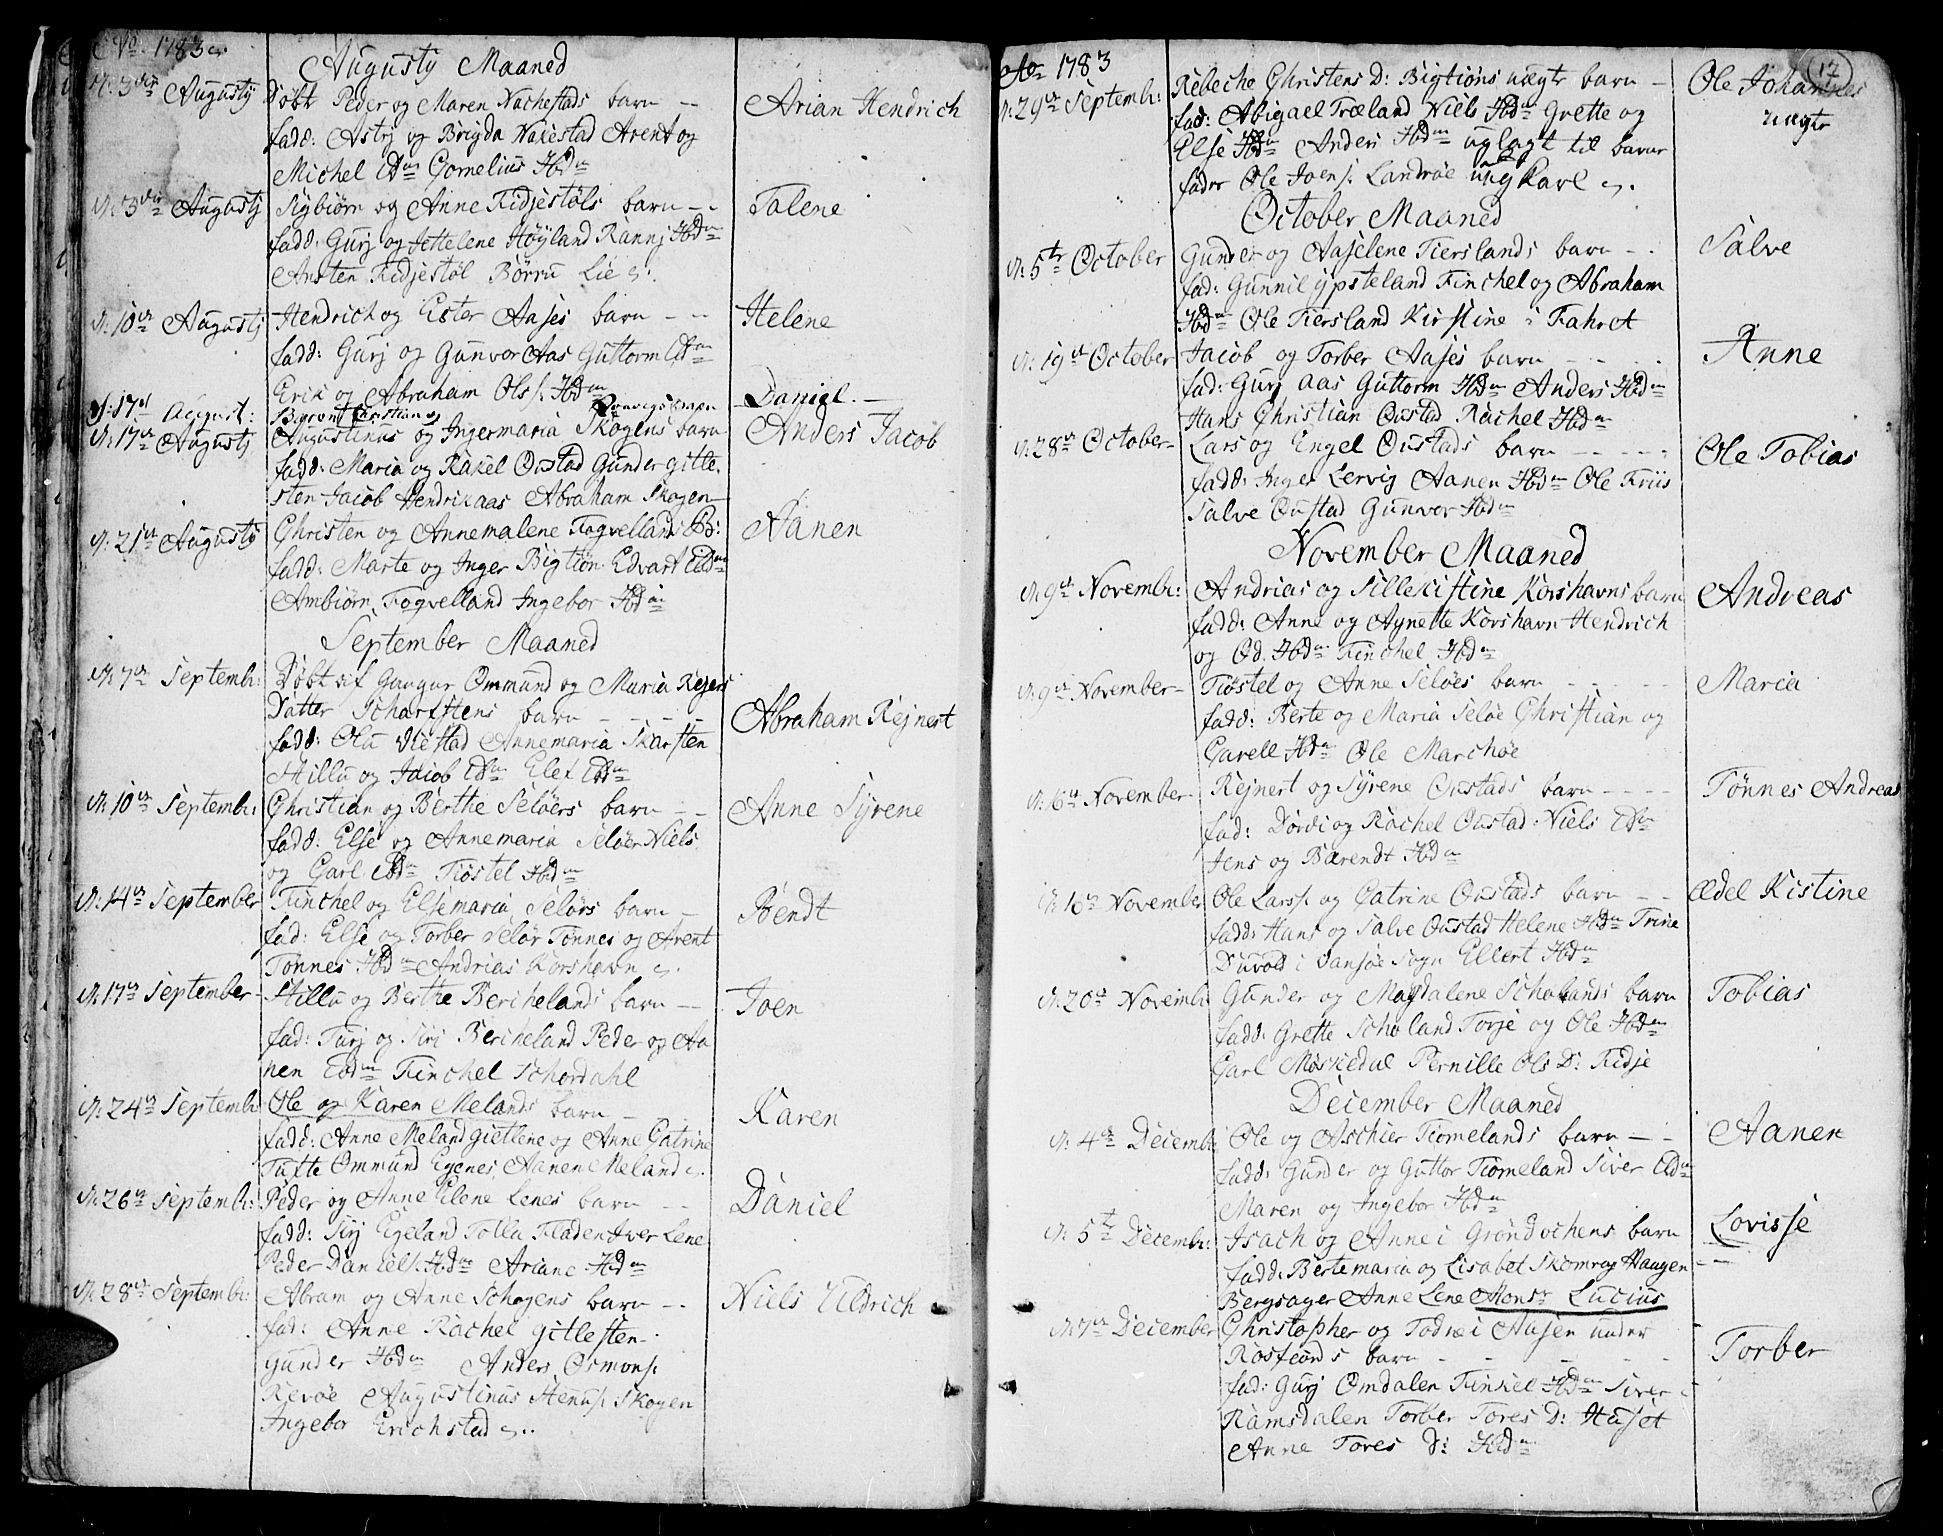 Ao. 1783
Augustj Maaned
d: 3die Augustj Døbt Peder og Maren Nachestads barn -- Arian Hendrich
fadd: Astrj og Brigda Nakestad Arent og
Michel Ebdm Cornelius Ibdm
d: 3die Augustj Sigbiørn og Anne Kidjestøls barn -- Talene
fadd: Gurj og Jettelene Høyland Rannj Ibdm
Ansten Kidjestøl Børru Lie
d: 10de Augustj Hendrich og Ester Aases barn -- Helene
fadd: Gurj og Gunvor Aas Guttorm Ebdm
Erik og Abraham Ols/. Ibdm
d: 17de August: Barent Carstian og Daniel. —
d: 17de Augustj Augustinus og Ingermaria Skogens barn Anders Jacob
fadd: Maria og Rakel Oustad Gunder gitle-
sten Jacob Hendrik aas Abraham Skogen
d: 21de Augustj Christen og Annemalene Fogvelland B: Aanen
fadd: Marte og Inger Bigtiøn Edvart Ebdm
Ambiørn Fogvelland Ingebor Ibdm
September Maaned
d: 7de Septemb: Døbt af Ommund og Maria Rejers
Datter Scharstens barn ---- Abraham Rejnert
fadd: Ola Anemaria Skarsten
Stillu og Jacob Ebdm Elef Ebdm
d: 10de Septemb: Christian og Berthe Seløers barn -- Anne Syrene
fadd: Else og Annemaria Seløer Niels
og Carl Ebdm Tiøstel Ibdm
d: 14de September Finchel og Elsemaria Seløes barn - Bendt
fad: Else og Torber Seløe Tønnes og Arent
Tønnes Ibdm Andrias Korshavn
d: 17de September Stillu og Berthe Berchelands barn -- Joen
fad: Turj og Siri Bercheland Peder og Aa
nen Ebdm Finchel Schordahl
d: 24de Septemb: Ole og Karen Melands barn - Karen
fadd: Anne Meland gietlene og Anne Catrine
Tuxte Ommund Egenes Aanen Meland
d: 26de Septemb: Peder og Anne Elene Lenes barn -- Daniel
fadd: Sirj Egeland Tolla Fladen Iver Lene
Peder Daniels/. Ibdm Ariane Ibdm
d: 28de Septemb: Abram og Anne Schogens barn -- Niels Uldrich
fad: Anne Rachel gitlesten
gunder Ibdm Anders Osmons/.
Revøe Augustinus Skogen
Ingebor Erichstad
Ao 1783 17
d: 29de Septemb: Rebeche Christens D: Bigtiøns uægte barn - Ole Johannes
fad: Abigael Træland Niels Ibdm Grette og uægte
Else Ibdm Anders Ibdm uglagt til barne
fader Ole Joens/. Landrøe ungkarl
October Maaned
d: 5te October Gunder og Aaselene Fierslands barn -- Salve
fad: Gunnil ypsteland Finchel og Abraham
Ibdm Ole Fiersland Kirstine i Fahret
d: 19de October Jacob og Torber Aases barn -- Anne
fad: Gurj aas Guttorm Ibdm Anders Ibdm
Hans Christian Oustad Rachel Ibdm
d: 28de October Lars og Engel Oustads barn ---- Ole Tobias
fadd: Inger Lervig Aanen Ibdm Ole Friis
Salve Oustad Gunvor Ibdm
November Maaned
d: 9de Novemb: Andrias og Sillekistine Korshavns barn Andreas
fadd: Anne og Agnette Korshavn Hendrich
og Od. Ibdm Finchel Ibdm
d: 9de November Tiøstel og Anne Seløes barn ----- Maria
fadd: Berte og Maria Seløe Christian og
Carell Ibdm Ole Marchøe
d: 16de November Rejnert og Syrene Oustads barn ---- Tønnes Andreas
fad: Dordi og Rachel Oustad Niels Ebdm
Jens og Bærendt Ibdm
d: 16de November Ole Lars/. og Catrine Oustads barn -- Ædel Kistine
fadd: Hans og Salve Oustad Helene Ibdm Trine
Duvold i Vansøe Sogn Ellert Ibdm
d: 20de Novemb: Gunder og Magdalene Scholands barn Tobias
fadd. Grette Scholand Torje og Ole Ibdm
Carl Moskedal Pernille Ols D: Kidje
December Maaned
d: 4de Decemb: Ole og Aschier Tiomelands barn -- Aanen
fadd: Gunder og Guttor Tiomeland Siver Ebdm
Maren og Ingebor Ibdm
d: 5te Decemb: Isach og Anne i Grøndochens barn Lovisse
fadd: Bertemaria og Lisabet Skomrag Haagen
Bergsager Anne Lene Monsr Lucius
d: 7de December Christopher og Todne i Aasen under
Rosfiords barn ---- Torber
fad: Gurj Omdalen Finkel Ibdm Siver i
Ramsdalen Torber Tores D: Huset
Anne Tores D: Ibdm